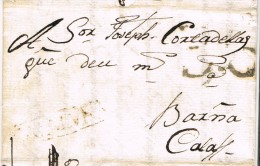 A Sor Joseph Cortadellas
que deu ms as
Barña
Calaf